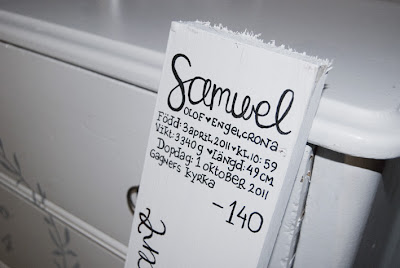 Samuel
OLOF ♥ ENGELCRONA
Född: 3 april 2011 ♥ kl. 10:59
Vikt: 3340 g ♥ Längd: 49 cm
Dopdag: 1 oktober 2011
Gagnefs kyrka
-140